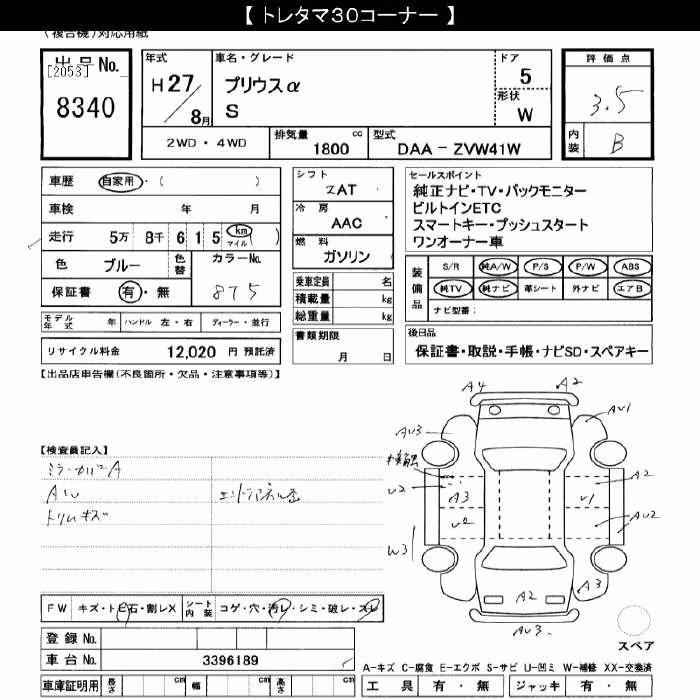 【 トレタマ30コーナー 】
(複合機)対応用紙
出品 No.
[2053]
8340
年式
H 27
8月
車名・グレード
プリウスα
S
ドア
5
形状
W
評 価 点
3.5
内装
B
2WD ・ 4WD
排気量 cc
1800
型式
DAA － ZVW41W
車歴 自家用 ・( )
車検 年 月
走行 5万 8千 6 1 5 km マイル ( )
色 ブルー
色替
カラーNo.
875
保証書 有 ・ 無
シフト
2AT
冷 房
AAC
燃 料
ガソリン
乗車定員 名
積載量 kg
総重量 kg
セールスポイント
純正ナビ・TV・バックモニター
ビルトインETC
スマートキー・プッシュスタート
ワンオーナー車
装備品
S/R 純A/W P/S P/W ABS
純TV 純ナビ 革シート 外ナビ エアB
ナビ型番：
モデル年式 年 ハンドル 左・右 ディーラー・並行
リサイクル料金 12,020 円 預託済
書類期限
月 日
後日品
保証書・取説・手帳・ナビSD・スペアキー
【出品店申告欄(不良箇所・欠品・注意事項等)】
【検査員記入】
ミラーカバーA
AW
トリムキズ
A4 A2
AU3 AU1
U2 A3 A2
U2 U1
AU2
W3
A2 A3
AU3
スペア
FW キズ・トビ石・割レX シート内装 コゲ・穴・汚レ・シミ・破レ・スレ
登録 No.
車台 No. 3396189
A－キズ C－腐食 E－エクボ S－サビ U－凹ミ W－補修 XX－交換済
車庫証明用 長さ cm 幅 cm 高さ cm
工 具 有 ・ 無 ジャッキ 有 ・ 無